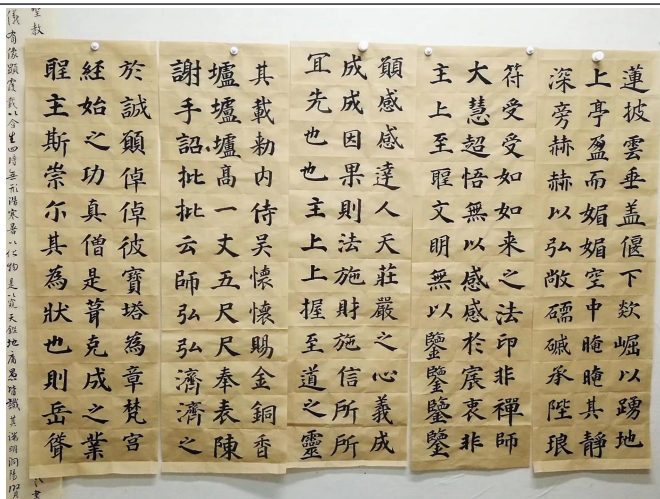 蓮披雲垂盖偃下欻崛以踴地
上亭盈而媚媚空中晻晻其靜
深旁赫赫以弘敞礝磩承陛琅
符受受如如来之法印非禪師
大慧超悟無以感感於宸衷非
主上至聖文明無以鑒鑒鑒鑒
願感感達人天莊嚴之心義成
成成因果則法施財施信所所
宜先也也主上上握至道之靈
其載勑内侍吴懷懷賜金銅香
壚壚壚髙一丈五尺尺奉表陳
謝手詔批批云師弘弘濟濟之
於誠願倬倬彼寶塔為章梵宫
經始之功真僧是葺克成之業
聖主斯崇尓其為狀也則岳聳
聖教
儀有像顯覆載以含生四時無形潛寒暑以化物是以窺天鑑地庸愚皆識其端明洞陽